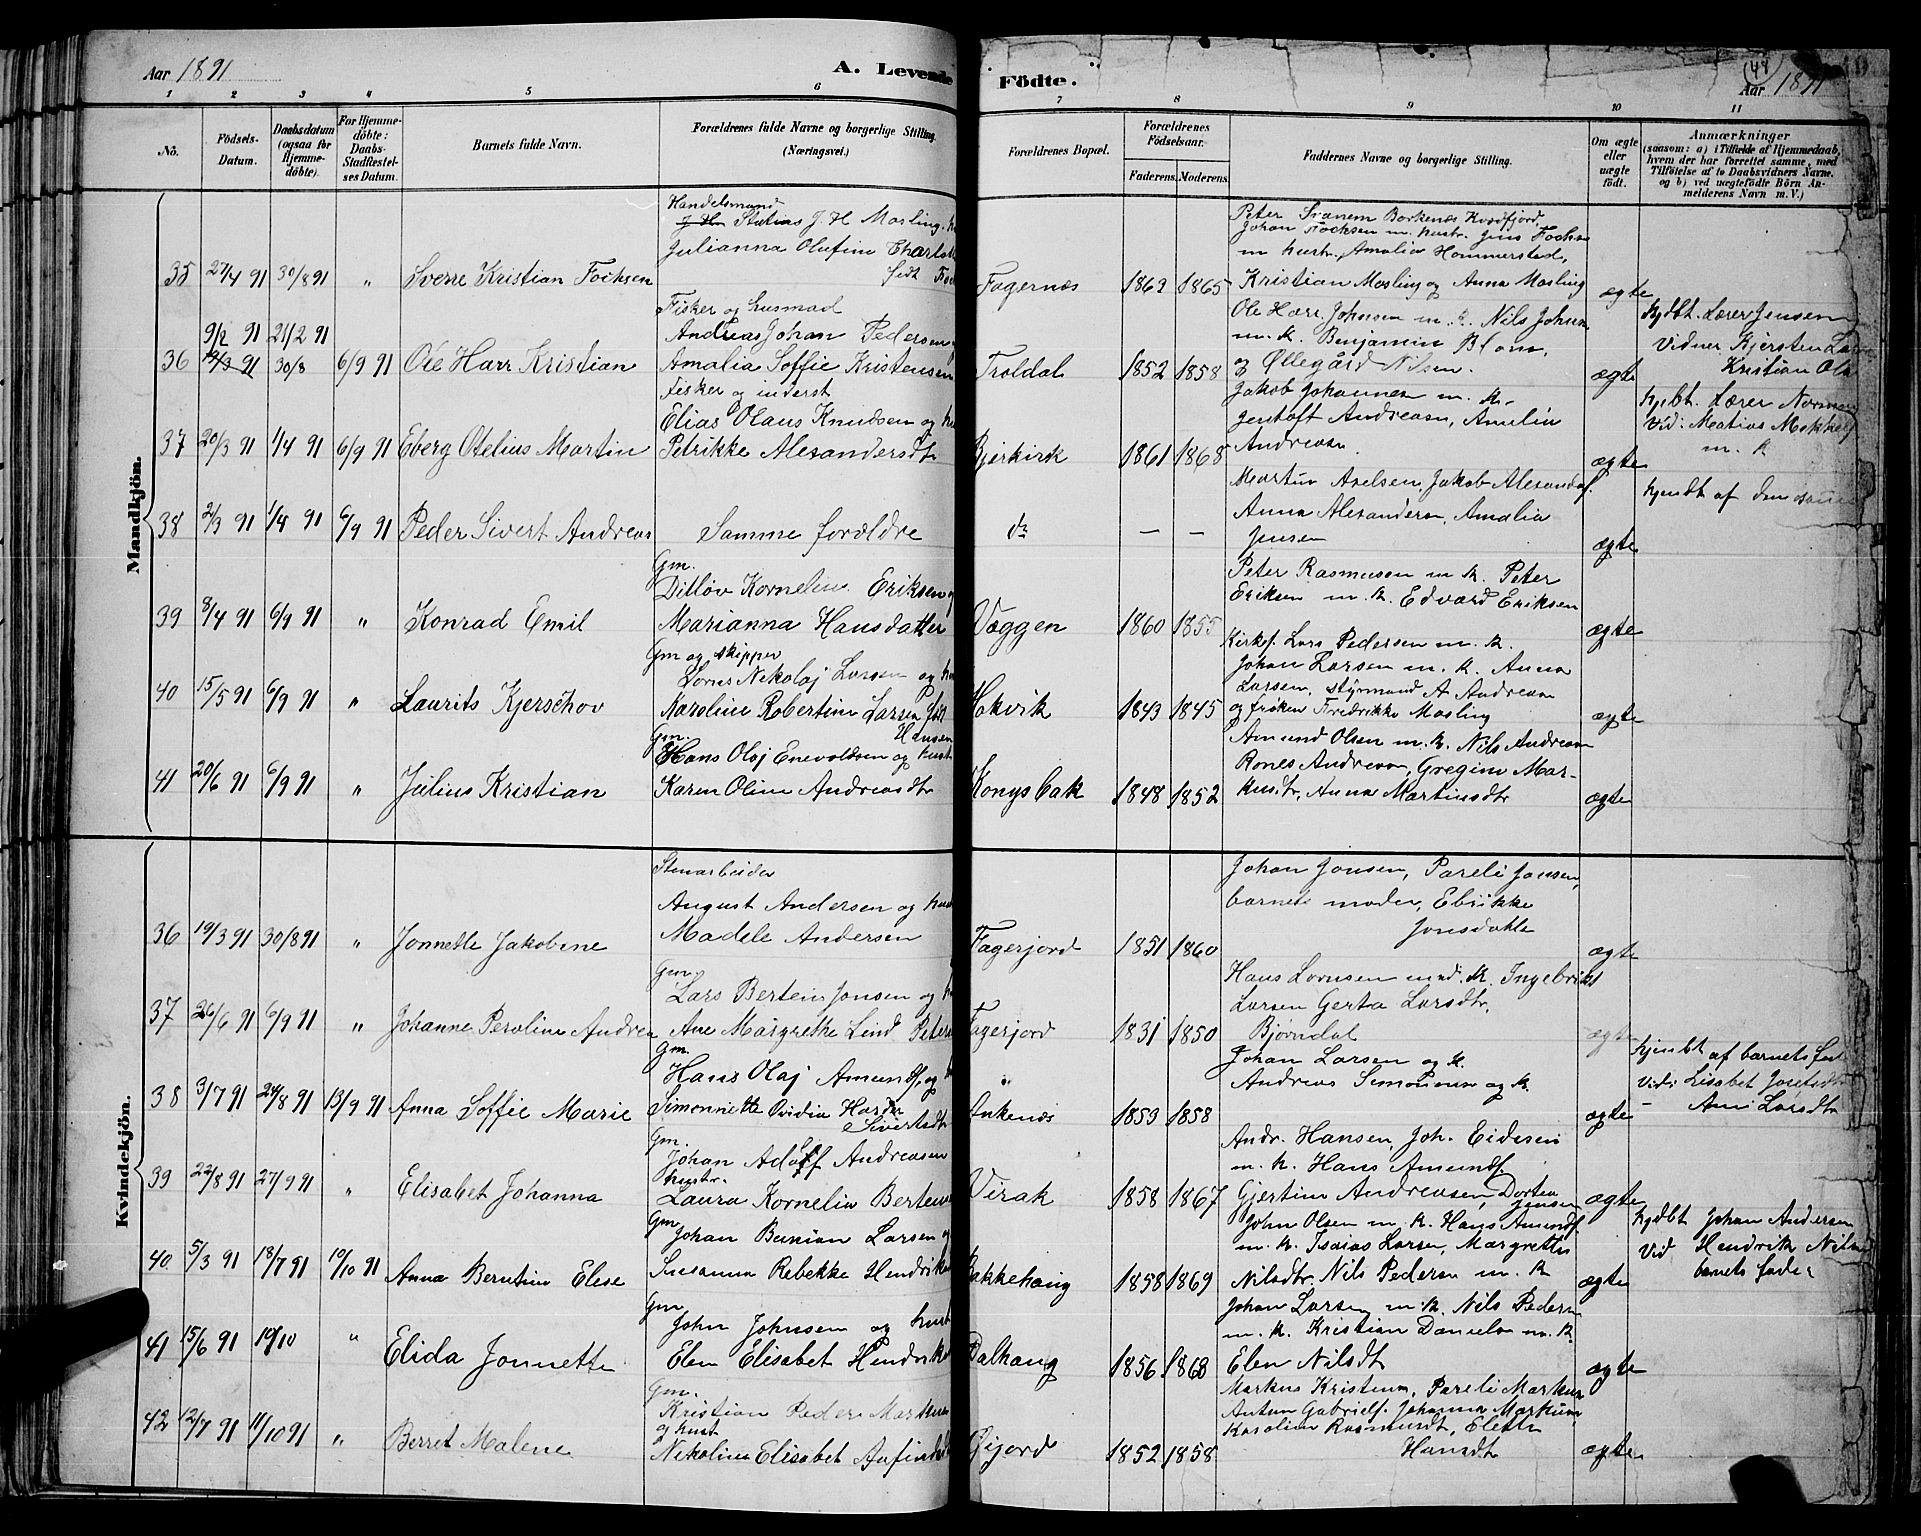 Aar 1891
A. Levende Födte.
44
Aar 1891
1 2 3 4 5 6 7 8 9 10 11
No.
Födsels-Datum.
Daabsdatum (ogsaa for Hjemme-döbte).
For Hjemme-döbte: Daabs-Stadfæstel-ses Datum.
Barnets fulde Navn.
Forældrenes fulde Navne og borgerlige Stilling. (Næringsvei.)
Forældrenes Bopæl.
Forældrenes Födselsaar.
Faderens. Moderens.
Faddernes Navne og borgerlige Stilling.
Om ægte eller uægte födt.
Anmærkninger
(saasom: a) i Tilfælde af Hjemmedaab, hvem der har forrettet samme, med Tilföielse af to Daabsvidners Navne. og b) ved uægtefödte Börn An-melderens Navn m. V.)
Mandkjön.
Handelsmand
Statius J. H Mosling
Julianna Olufine Charlot
født
35 27/4 91 30/8 91 " Sverre Kristian Focksen
Fagernæs 1869 1865
Peter Svanem Borkenæs Kvædfjord,
Johan Focksen m. hustr. Jens Focksen
m hustr. Amalia Hommerstad,
Kristian Mosling og Anna Mosling
ægte
Fisker og husmad
9/2 91 21/2 91 Andreas Johan Pedersen
36 14/3 91 30/3 6/9 91 Ole Harr Kristian
Amalia Soffie Kristensen
Troldal 1852 1858
Ole Harr Johnsen m. k. Nils Johnsen
m. k. Benjamin Blom,
og Øllegård Nilsen.
ægte
Hjdbt. Lærer Jensen
Vidner Kjersten
Kristian
Fisker og inderst
Elias Olaus Knudsen og
37 20/3 91 1/4 91 6/9 91 Eberg Otelius Martin
Petrikke Alexandersdt
Bjerkvik 1861 1868
Jakob Johannesen m. k.
Gentoft Andreasen, Amalia
Andreasen
ægte
Hjdbt. Lærer Norman
Vid: Matias
m. k
38 2/3 91 1/4 91 6/9 91 Peder Sivert Andreas
Samme forældre
do — —
Martin Axelsen, Jakob Alexandf.
Anna Alexandersen, Amalia
Jensen
ægte
Hjemdt af den samme
Gm.
Ditløv Kornelius Eriksen
39 8/4 91 6/9 91 " Konrad Emil
Marianna Hansdatter
Væggen 1860 1855
Peter Rasmusen m k. Peter
Eriksen m. k. Edvard Eriksen
ægte
Gm og skipper
Lorns Nikolaj Larsen og
40 15/5 91 6/9 91 " Laurits Kjerschov
Karoline Robertine Larsen født
Hansen
Hakvik 1843 1845
Kirkes. Lars Pedersen m. k.
Johan Larsen m. k. Anna
Larsen, styrmand A Andreasen
og frøken Fredrikke Mosling
ægte
Gm.
Hans Olaj Enevoldsen og hust
41 20/6 91 6/9 91 " Julius Kristian
Karen Oline Andreasdt
Kongsbak 1848 1852
Amund Olsen m. k. Nils Andreasen
Rones Andreasen, Gregine Mar-
kusdtr, Anna Martinsdtr
ægte
Kvindekjön.
Stenarbeider
August Andersen og
36 19/3 91 30/8 91 " Jonnette Jakobine
Madele Andersen
Fagerjord 1851 1860
Johan Jonsen, Pareli Jonsen,
barnets moder, Ebrikke
Jonsdatter
ægte
Gm.
Lars Berteus Jonsen og
37 26/6 91 6/9 91 " Johanne Peroline Andrea
Ane Margrethe Lind
Fagerjord 1831 1850
Hans Lornsen med k. Ingebrikt
Larsen Gerta Larsdtr,
Bjørndal
ægte
Gm.
Hans Olaj Amundf. og
38 3/7 91 24/8 91 13/9 91 Anna Soffie Marie
Simonnette Ovidia
Sivertsdt
Ankenæs 1853 1858
Johan Larsen og k.
Andreas Simonsen og k
ægte
Hjembt af barnets far
Vid: Lisabet Josefsdt
Ane Larsdtr
Gm.
Johan Adolf Andreasen
hustr.
39 22/8 91 27/9 91 " Elisabet Johanna
Laura Kornelia
Virak 1858 1867
Andr. Hansen, Joh. Eidesen
m. k. Hans Amundf.
Gjertine Andreasen, Dortea
Jensen
ægte
Gm
Johan Benian Larsen
40 5/3 91 18/7 91 19/10 91 Anna Berntine Elese
Susanna Rebekke
Bakkehaug 1858 1869
John Olsen m. k. Hans Amundf
m. k. Isaias Larsen, Margrethe
Nilsdtr. Nils Pedersen m. k
ægte
Hjdbt Johan Andersen
Vid Hendrik
barnets fader
Gm
John Johnsen og hust
41 15/6 91 19/10 " Elida Jonnette
Elen Elisabet
Dalhaug 1856 1868
Johan Larsen m. k. Nils Pedersen
m. k. Kristian Danielsen m. k.
Elen Nilsdt
ægte
Gm.
Kristian Peder
og hust
42 12/7 91 11/10 91 " Berret Malene
Nikoline Elisabet
Øijord 1852 1858
Markus Kristensen, Pareli Markusen
Anton Gabrielf. Johanna Markusen
Karoline Rasmusdt, Elette
Hansdt
ægte